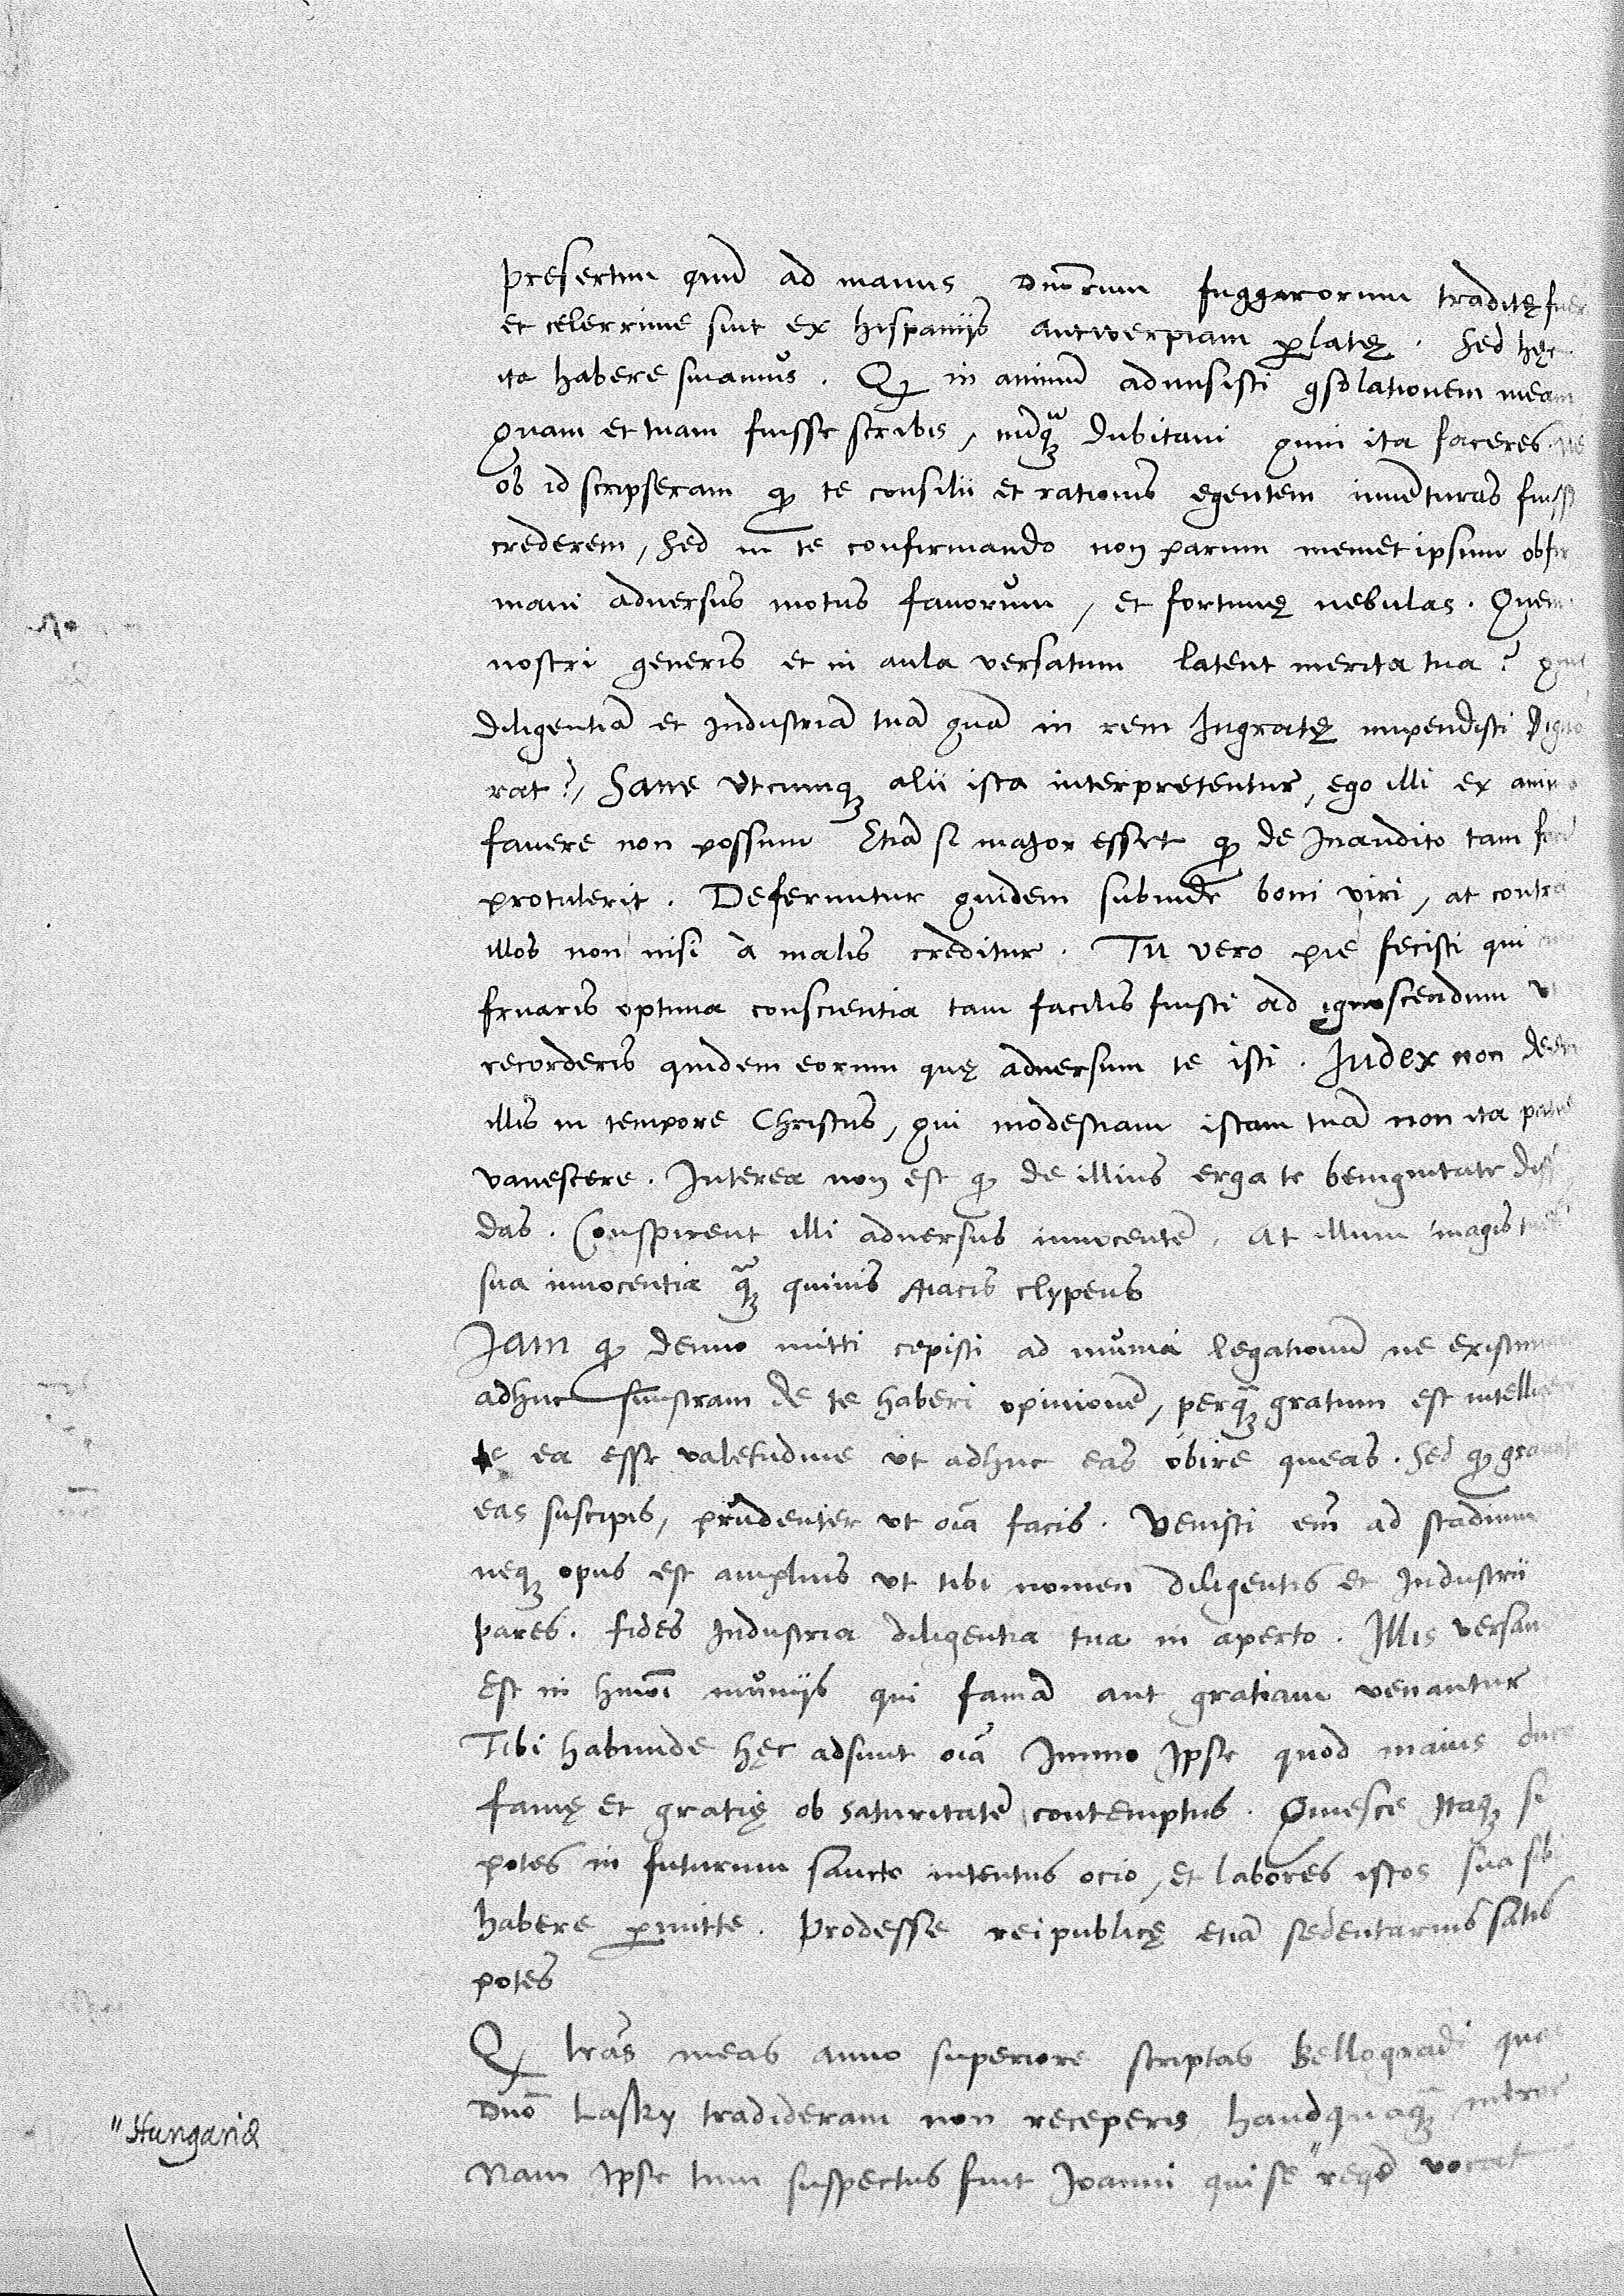 presertim quum ad manus Dnorum fuggerorum traditę fuer
et celerrime sint ex hispanijs antwerpiam perlatę. Sed hęc
ita habere sinamus. Q in animum admisisti consolationem meam
quam et tuam fuisse scribis, nunquam dubitavi quin ita faceres. ne
ob id scripseram q te consilii et rationis egentem inventuras fuisse
crederem, sed in te confirmando non parum memet ipsum obfir
mavi adversus motus favorum, et fortunę nebulas. Quem
nostri generis et in aula versatum latent merita tua? quis
diligentiã et Industriã tuã quã in rem Ingratę impendisti Igno
rat? Sane utcumq alii ista interpretentur, ego illi ex animo
favere non possum Etiã si major esset q de Inaudito tam
protulerit. Deferuntur quidem subinde boni viri, at contra
illos non nisi a malis creditur. Tu vero pie fecisti qui cum
fruaris optima conscientia tam facilis fuisti ad ignoscendum ut
recorderis quidem eorum quę adversum te isti. Iudex non deerit
illis in tempore Christus, qui modestiam istam tuã non ita patie
vanescere. Interea non est q de illius erga te benignitate diffi
das. Conspirent illi adversus innocentẽ. At illum magis
sua innocentia q̃ quivis Aiacis clypeus
Iam q denuo mitti cepisti ad munia legationum ne existiment
adhuc sinistram de te haberi opinionẽ, perq̃ gratum est intelligere
te ea esse valetudine ut adhuc eas obire queas. Sed q gravate
eas suscipis, prudenter ut oĩa facis. Venisti em̃ ad stadium
neq opus est amplius ut tibi nomen diligentis et Industrii
pares. fides Industria diligentia tua in aperto. Illis versan
est in hmõi munijs qui famã aut gratiam venantur
Tibi habunde hęc adsunt oĩa Immo Ipse quod maius
famę et gratię ob saturitatẽ contemptus. Quiesce Itaq si
potes in futurum sancto intentus ocio, et labores istos sua sibi
habere permitte. Prodesse reipublicę etiã sedentarius satis
potes
Q lrãs meas anno superiore scriptas Bellogradi quas
Dnõ Lasky tradideram non receperis haudquaq̃ miror
Nam Ipse tum suspectus fuit Joanni qui se " regẽ vocat
" Hungarię